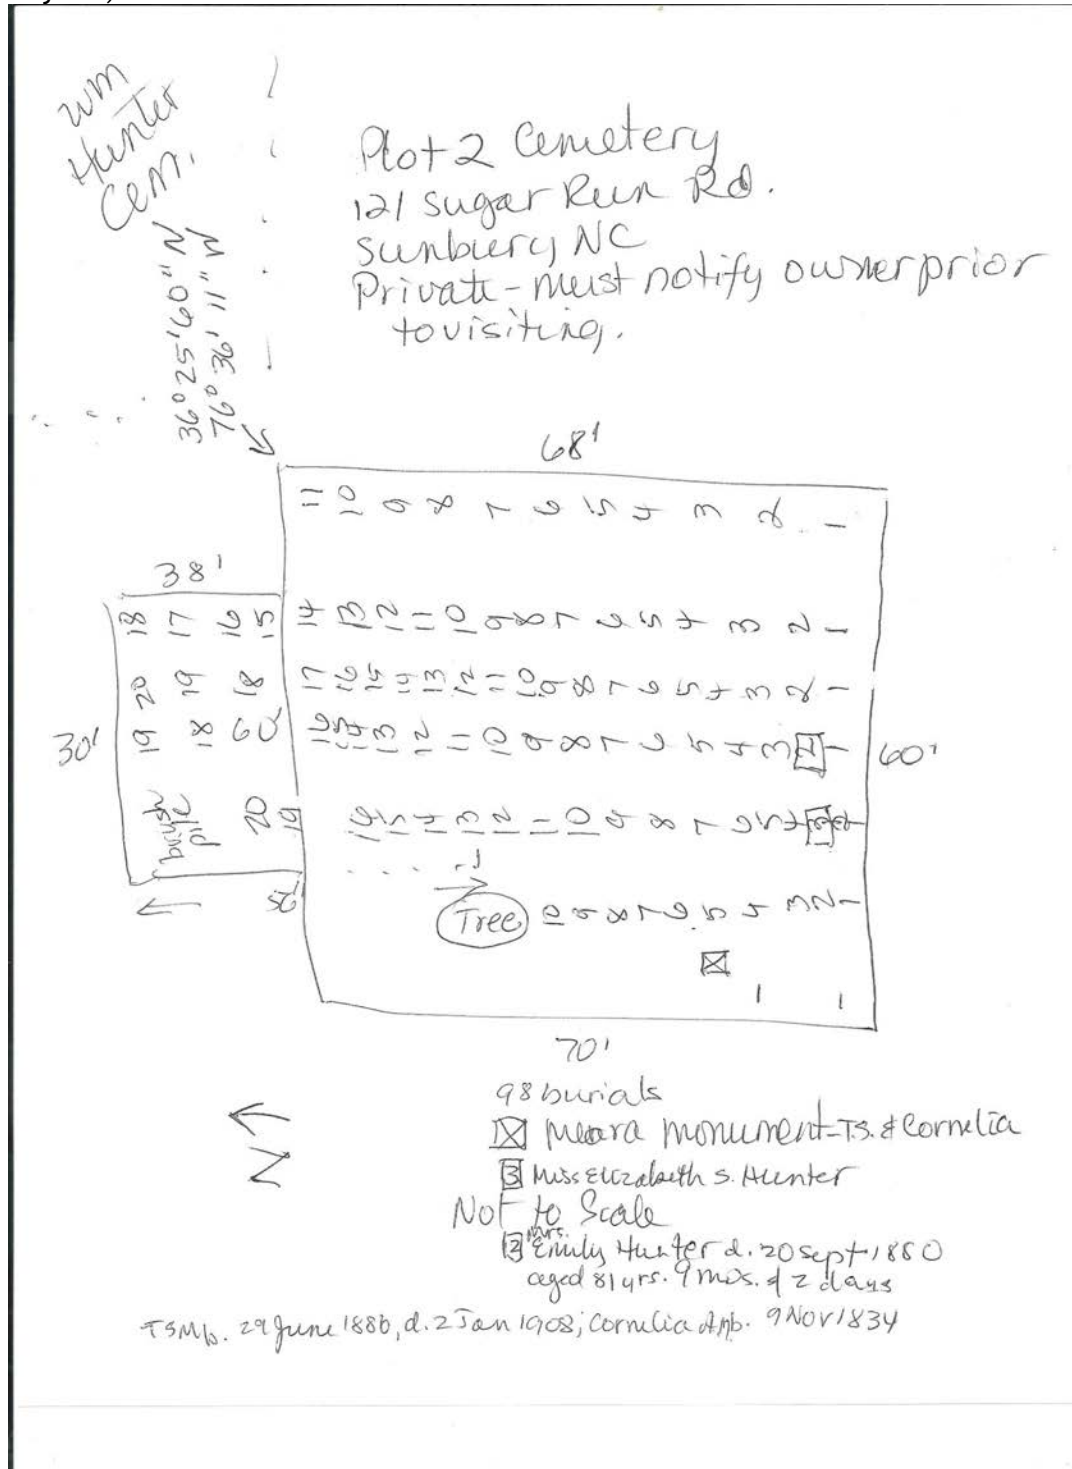 wm
Hunter
Cem.
36° 25' 60" N
76° 36' 11" W
Plot 2 Cemetery
121 Sugar Run Rd.
Sunbury NC
Private - must notify owner prior
to visiting.
68'
11 10 9 8 7 6 5 4 3 2 1
38'
18 17 16 15 14 13 12 11 10 9 8 7 6 5 4 3 2 1
20 19 18 17 16 15 14 13 12 11 10 9 8 7 6 5 4 3 2 1
30'
19 18 16 15 14 13 12 11 10 9 8 7 6 5 4 3 2 1
60'
brush
pile
20 19 16 15 14 13 12 11 10 9 8 7 6 5 4 3
Tree 10 9 8 7 6 5 4 3 2 1
1 1
70'
N
98 burials
monument - T.S. & Cornelia
3 Miss Elizabeth S. Hunter
Not to Scale
2 Mrs. Emily Hunter d. 20 Sept. 1880
aged 81 yrs. 9 mos. & 2 days
TSM b. 29 June 1886, d. 2 Jan 1908; Cornelia A. b. 9 Nov 1834